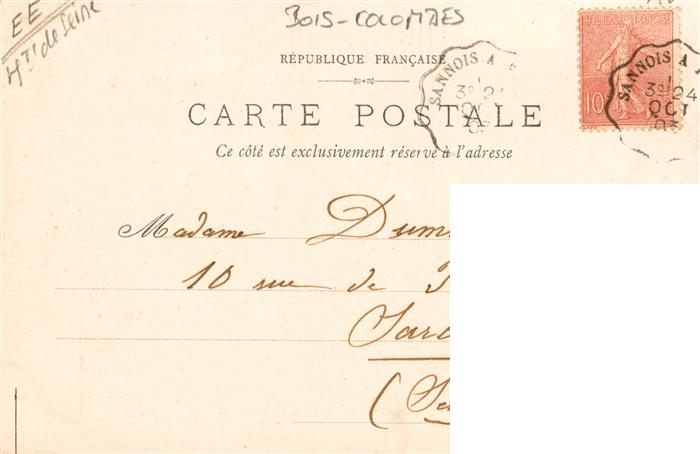 EE
Hts de Seine
BOIS-COLOMBES
RÉPUBLIQUE FRANÇAISE
CARTE POSTALE
Ce côté est exclusivement réservé à l'adresse
SANNOIS A
3º 24
OCT
RÉPUBLIQUE FRANÇAISE
10
SANNOIS A
3º 24
OCT
03
Madame
10 rue de